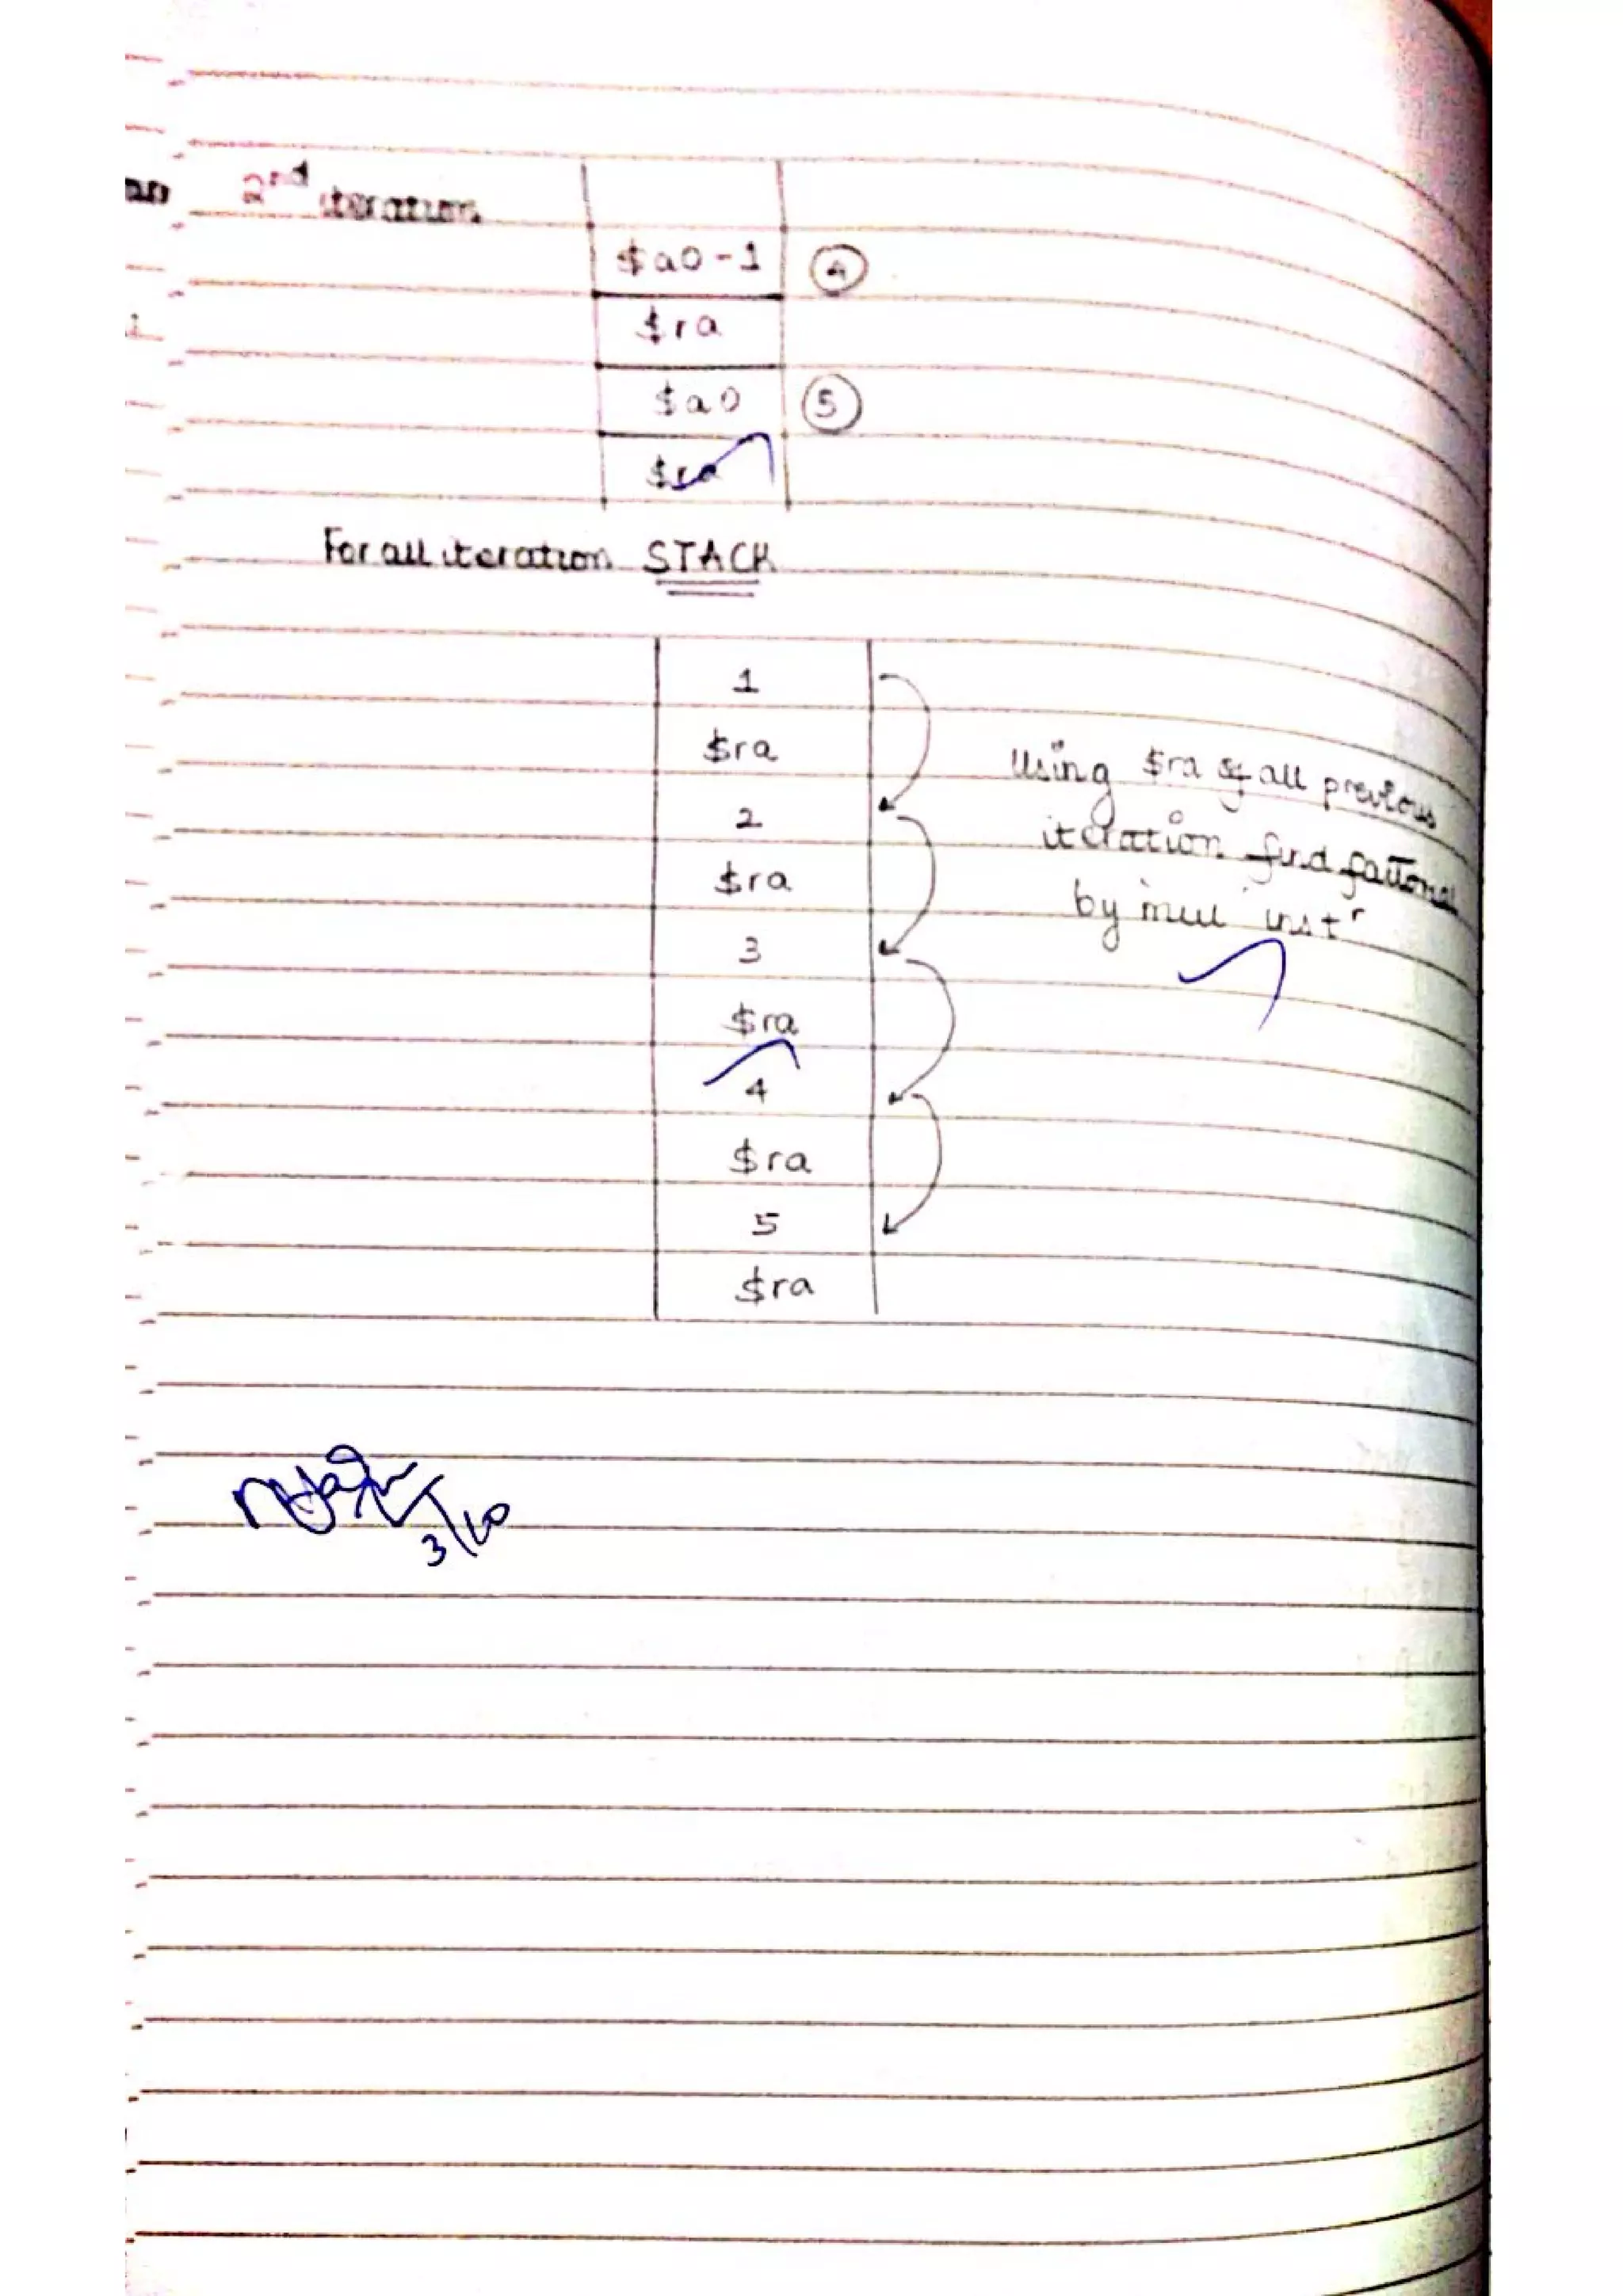 2nd iteration
$a0-1 4
$ra
$a0 5
$ra
For all iteration STACK
1
$ra
Using $ra of all previous
2
iteration find factorial
$ra
by mul instr
3
$ra
4
$ra
5
$ra
3/10